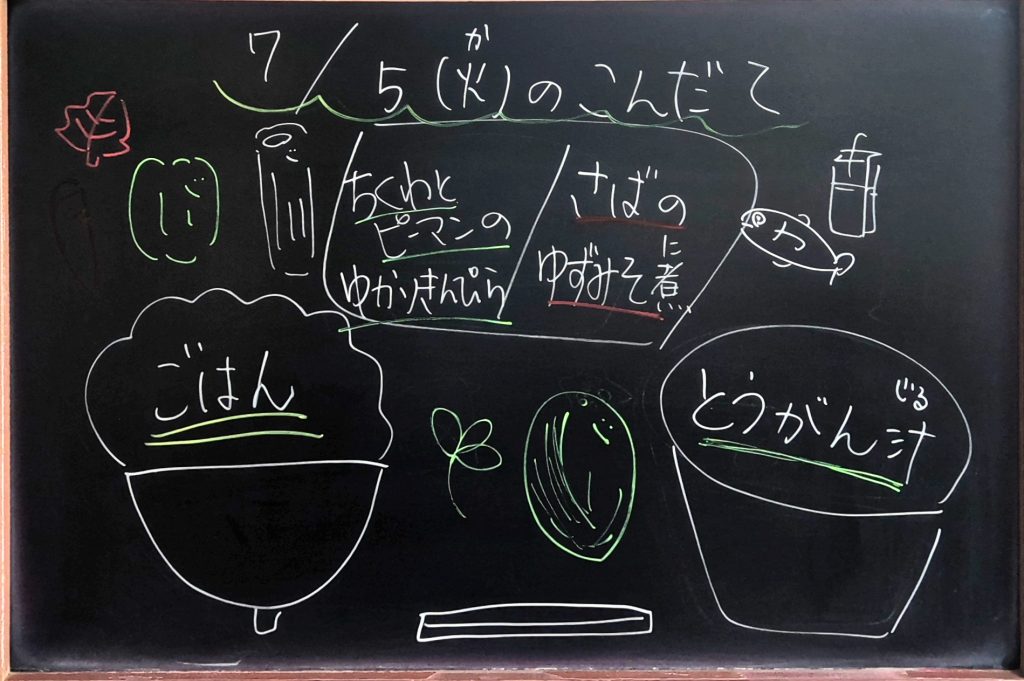 7/5(火)のこんだて
か
ちくわと
ピーマンの
ゆかりきんぴら
さばの
ゆずみそ煮
に
ごはん
とうがん汁
じる